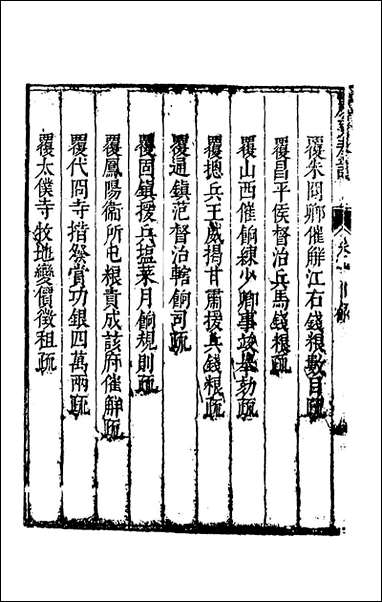 覆朱冏卿催解江右錢粮數目疏
覆昌平侯督治兵馬錢粮疏
覆山西催餉練少卿事竣舉劾疏
覆揔兵王威揭甘肅援兵錢粮疏
覆通鎮范督治轄餉司疏
覆固鎮援兵塩菜月餉規則疏
覆鳳陽衞所屯粮責成該府催解疏
覆代冏寺揩發賞功銀四萬兩疏
覆太僕寺牧地變價徵租疏